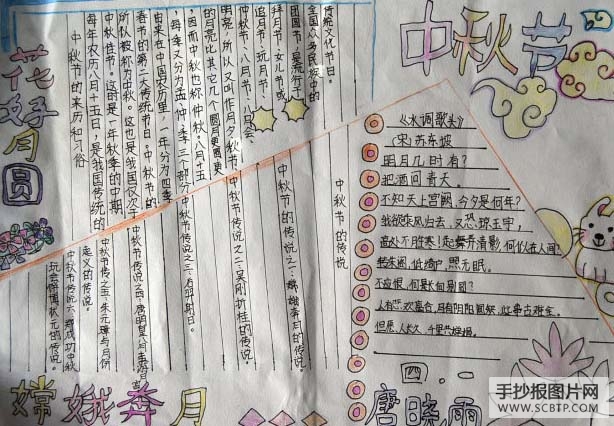 中秋节
花好月圆
中秋节的来历和习俗
每年农历八月十五日，是我国传统的
中秋佳节。这时是一年秋季的中期，
所以被称为中秋。这也是我国仅次于
春节的第二大传统节日。中秋节的
由来在中国农历里，一年分为四季
每季又分为孟、仲、季三个部分
因而中秋也称仲秋。八月十五
的月亮比其它几个圆月更圆更
明亮，所以又叫作月夕秋节
仲秋节、八月节、八月会、
追月节、玩月节、
拜月节、女儿节或
团圆节，是流行于
全国众多民族中的
传统文化节日。
中秋节的传说
中秋节的传说之一：嫦娥奔月的传说。
中秋节传说之二：吴刚折桂的传说。
中秋节传说之三
中秋节传说之四：唐明皇
中秋节传说之五：朱元璋与月饼
起义的传说。
中秋节传说六：郑成功中秋
玩会饼博状元的传说。
《水调歌头》
(宋)苏东坡
明月几时有？
把酒问青天。
不知天上宫阙，今夕是何年？
我欲乘风归去，又恐琼玉宇，
高处不胜寒！起舞弄清影，何似在人间？
转朱阁，低绮户，照无眠。
不应恨，何长向
人有悲欢离合，月有阴阳圆缺，此事古难全。
但愿人长久，千里共婵娟。
嫦娥奔月
四.一
唐晓雨
手抄报图片网
WWW.SCBTP.COM